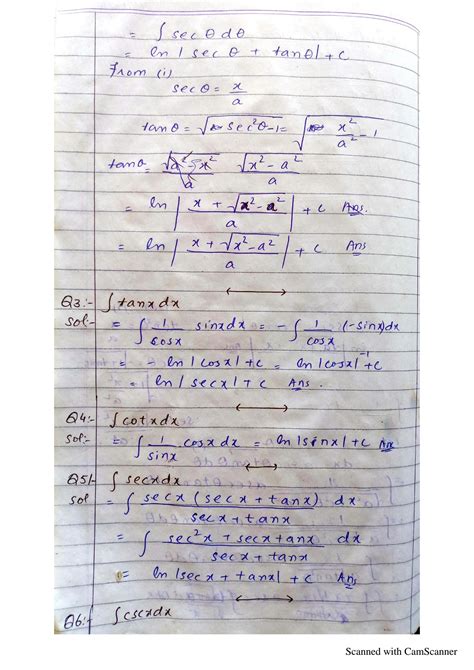 = ∫ sec θ dθ
= ln | sec θ + tan θ | + c
From (i)
sec θ = x/a
tan θ = √(sec²θ-1) = √(x²/a² - 1)
tan θ = √(x² - a²)/a
= ln | (x + √(x² - a²))/a | + c Ans.
= ln | (x + √(x² - a²))/a | + c Ans
Q3:- ∫ tanx dx
Sol:- = ∫ 1/cosx sinx dx = - ∫ 1/cosx (-sinx) dx
= - ln | cosx | + c = ln |cosx|⁻¹ + c
= ln | secx | + c Ans.
Q4:- ∫ cotx dx
Sol:- = ∫ 1/sinx . cosx dx = ln |sinx| + c Ans
Q5:- ∫ secx dx
Sol = ∫ secx (secx + tanx)/(secx + tanx) dx
= ∫ (sec²x + secx tanx)/(secx + tanx) dx
= ln |secx + tanx| + c Ans
Q6:- ∫ cscx dx
Scanned with CamScanner